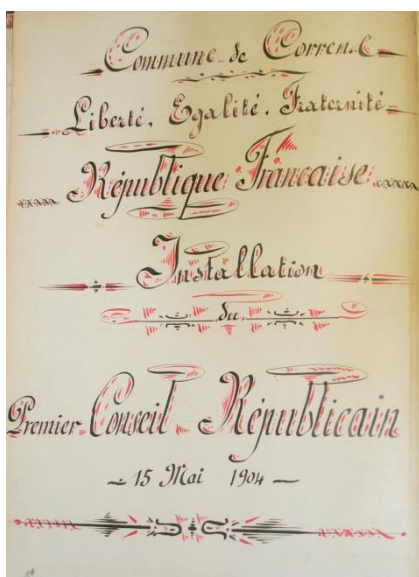 Commune de Corren.c
Liberté, Egalité, Fraternité
République Francaise
Installation
du
Premier Conseil Républicain
15 Mai 1904